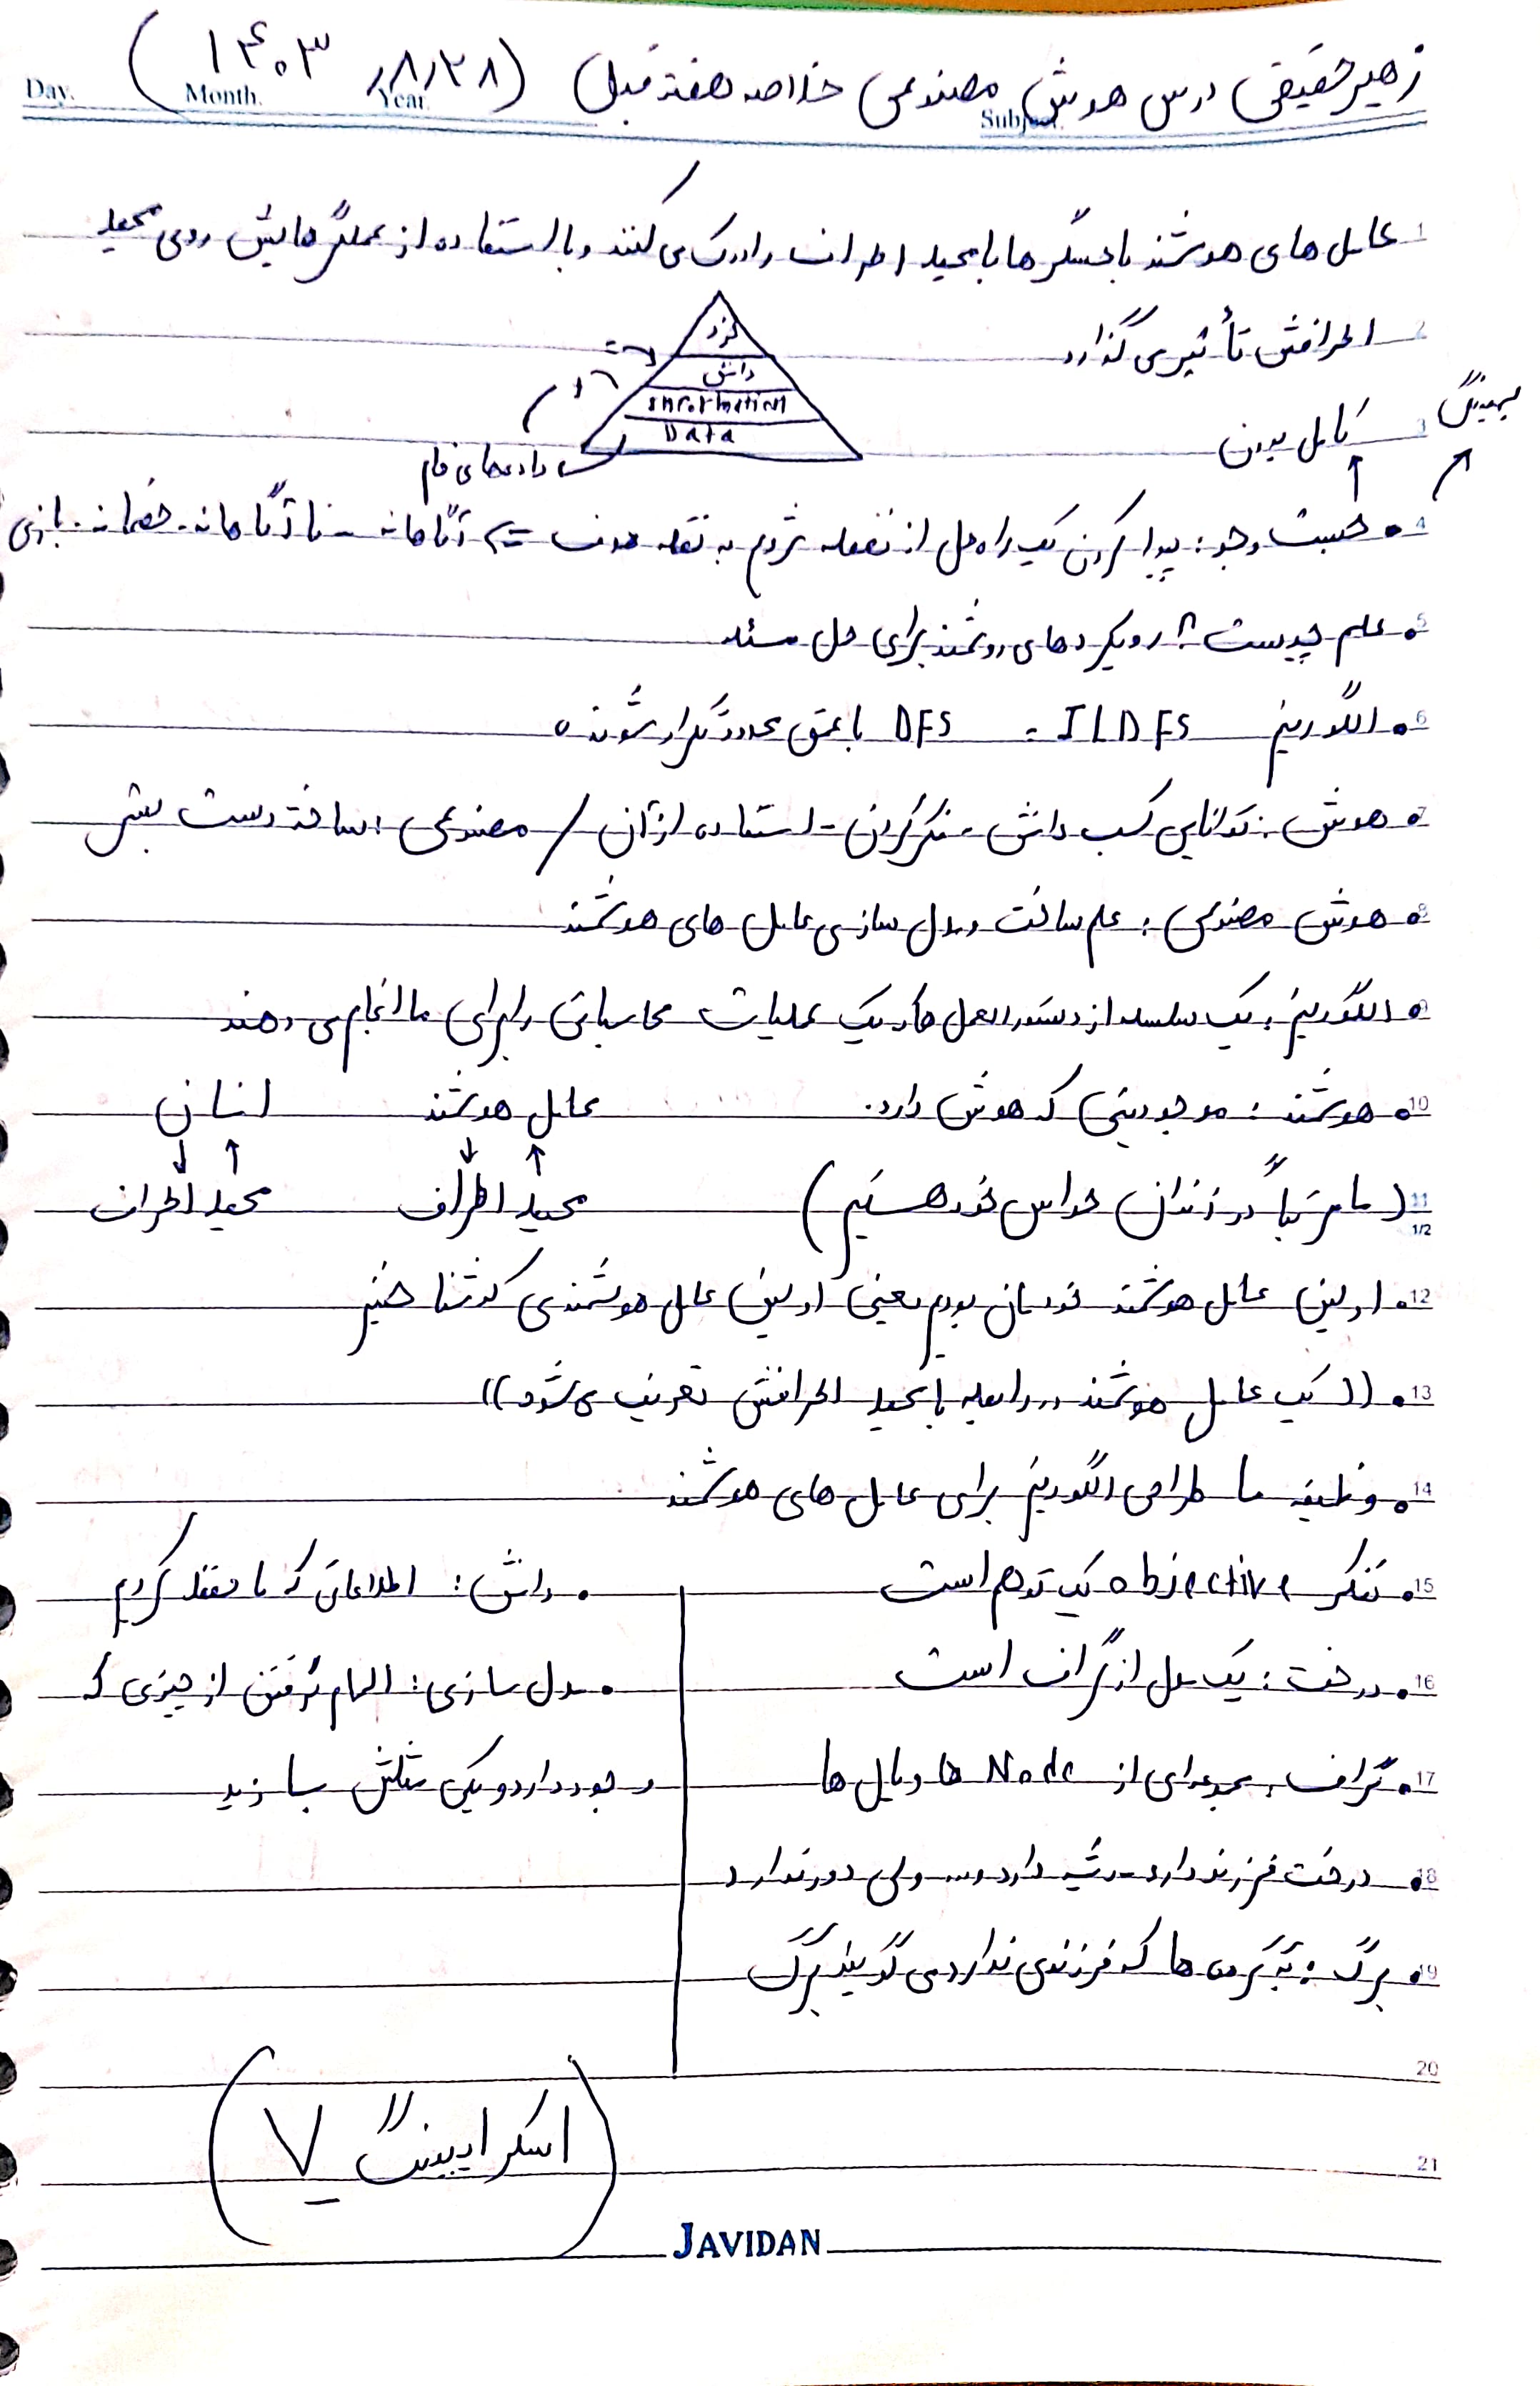 زهیر حقیقی درس هوش مصنوعی خلاصه هفته قبل (۱۴۰۳/۸/۲۸)
Day. Month. Year. Subject.
عامل های هوشمند با حسگر ها با محیط اطراف را درک می کنند و با استفاده از عملگرهایش روی محیط
اطرافش تأثیر می گذارد
خرد
دانش
Information
Data
داده های خام
کامل بودن
بهینگی
• جست و جو: پیدا کردن یک راه حل از نقطه شروع به نقطه هدف ⇐ آگاهانه - ناآگاهانه - خصمانه - بازی
• علم چیست؟: رویکردهای روشمند برای حل مسئله
• الگوریتم ILDFS = DFS با عمق محدود تکرار شونده
• هوش: توانایی کسب دانش - فکر کردن - استفاده از آن / مصنوعی: ساخته دست بشر
• هوش مصنوعی: علم ساخت و مدل سازی عامل های هوشمند
• الگوریتم: یک سلسله از دستورالعمل ها که یک عملیات محاسباتی را برای ما انجام می دهند
• هوشمند: موجودیتی که هوش دارد. عامل هوشمند انسان
↓ ↑ ↓ ↑
(ما مرتباً در زندان حواس خود هستیم) محیط اطراف محیط اطراف
• اولین عامل هوشمند خودمان بودیم یعنی اولین عامل هوشمندی که شناختیم
• ((یک عامل هوشمند در رابطه با محیط اطرافش تعریف می شود))
• وظیفه ما طراحی الگوریتم برای عامل های هوشمند
• تفکر objective یک توهم است
• درخت: یک مدل از گراف است
• گراف: مجموعه ای از Node ها و یال ها
• درخت فرزند دارد - ریشه دارد و... ولی دور ندارد
• برگ: به گره ها که فرزندی ندارد می گویند برگ
• دانش: اطلاعاتی که ما حفظ کردیم
• مدل سازی: الهام گرفتن از چیزی که
وجود دارد و یکی مثلش بسازید
(اسکرایبینگ ۷)
JAVIDAN